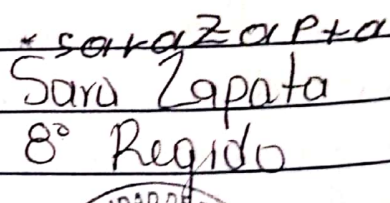 * saraZapta
Sara Zapata
8° Regido